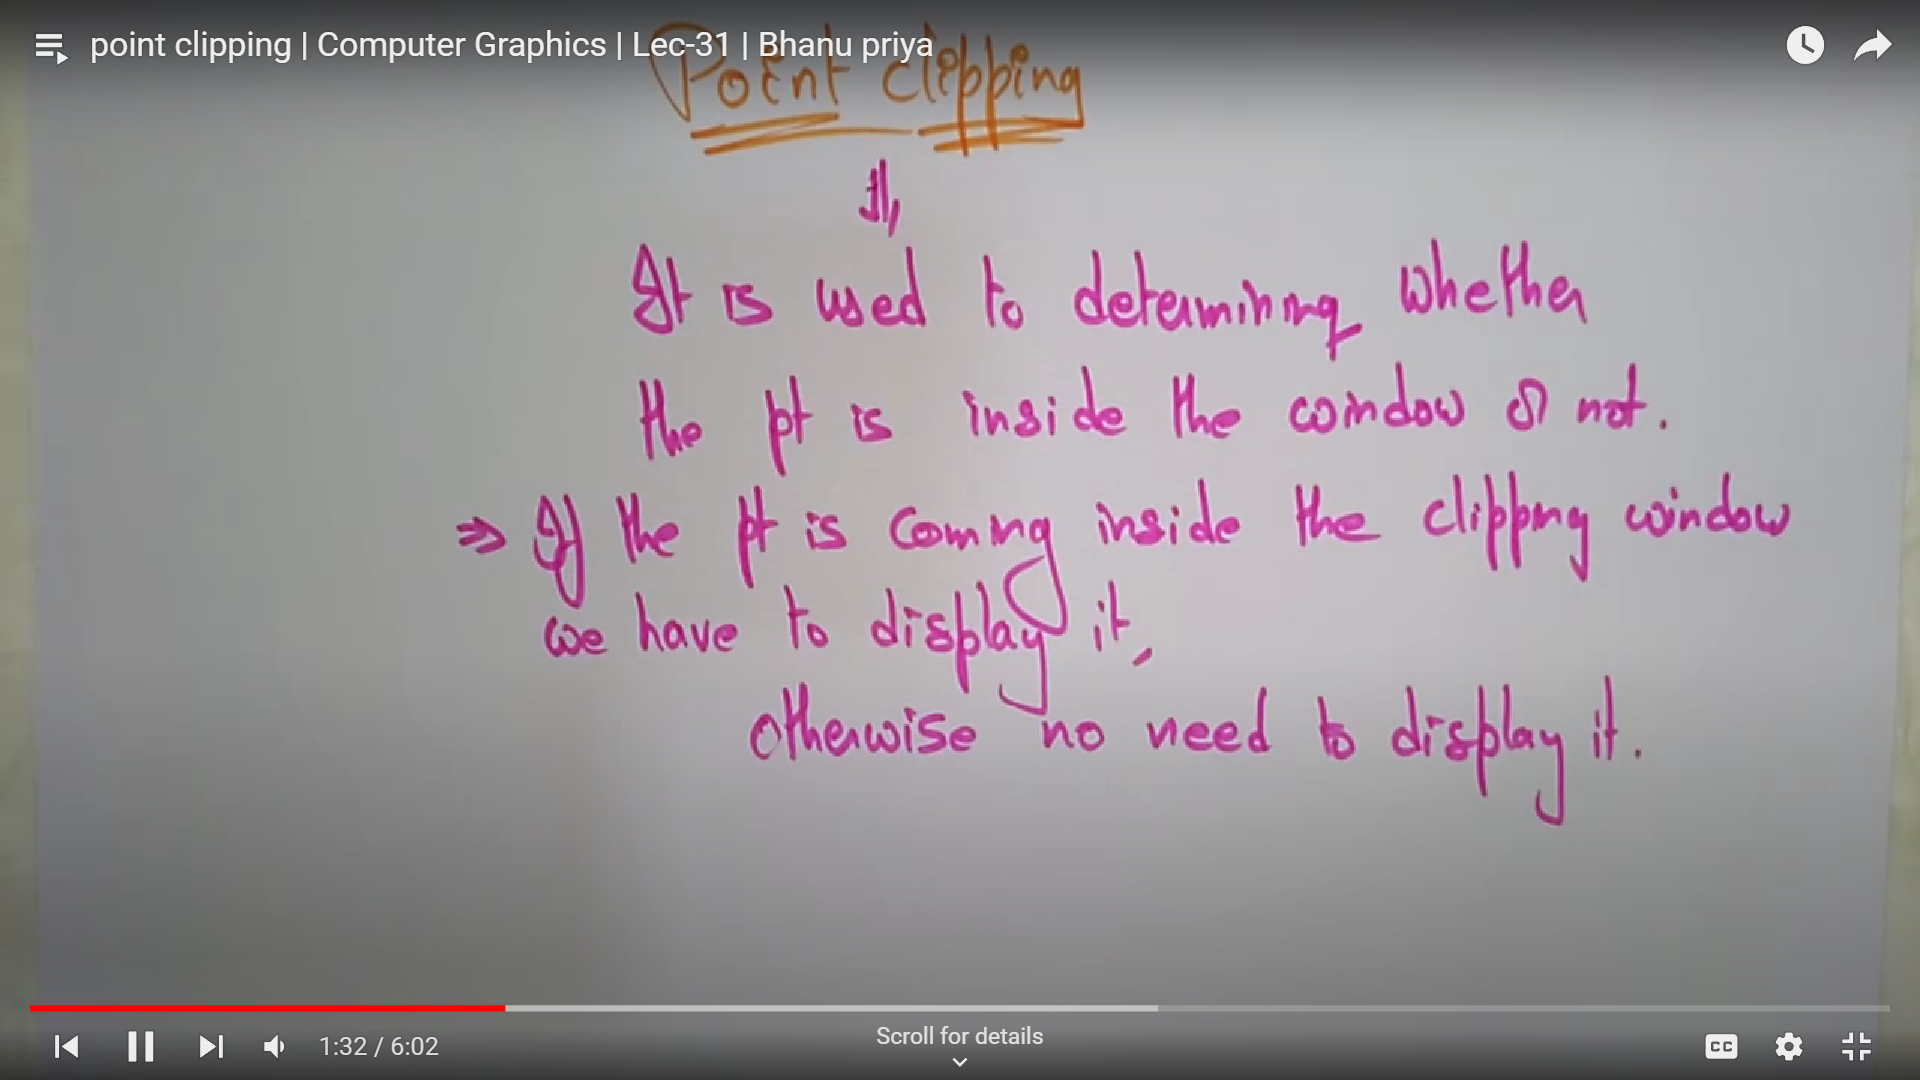 point clipping | Computer Graphics | Lec-31 | Bhanu priya
Point clipping
It is used to determining whether
the pt is inside the window or not.
⇒ If the pt is coming inside the clipping window
we have to display it,
otherwise no need to display it.
1:32 / 6:02
Scroll for details
CC